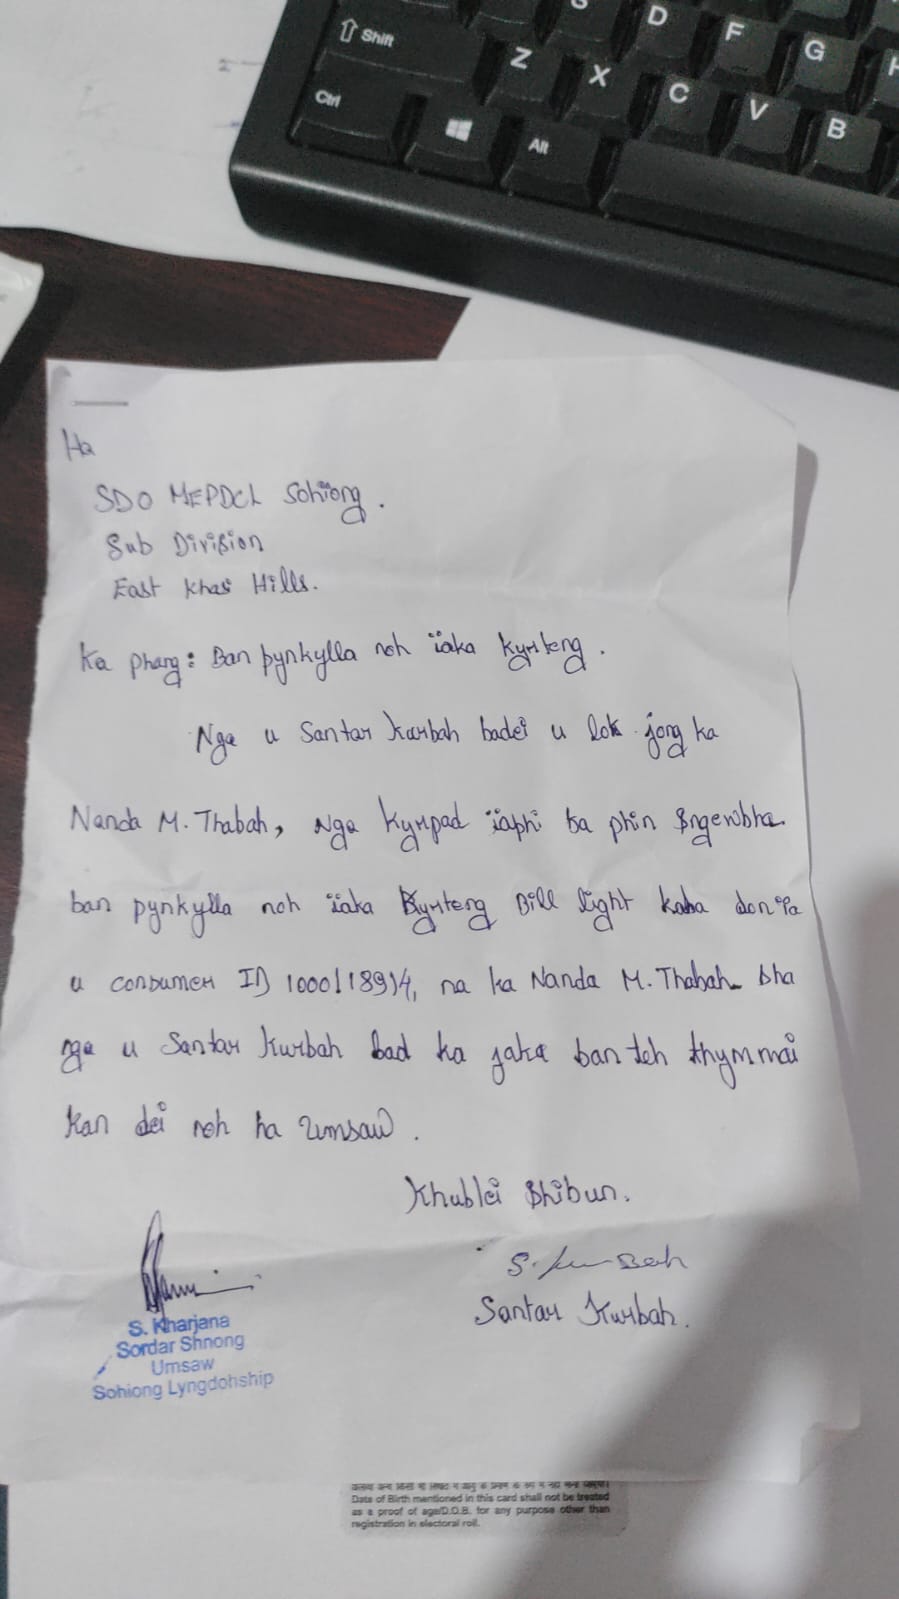 Shift
Z
X
C
V
B
D
F
G
Ctrl
Alt
Ha
SDO MEPDCL Sohiong.
Sub Division
East Khasi Hills.
Ka phang: Ban pynkylla noh ïaka Kyrteng.
Nga u Santar Kurbah badei u lok jong ka
Nanda M. Thabah, Nga Kyrpad ïaphi ba phin sngewbha
ban pynkylla noh ïaka Kyrteng Bill light kaba don ïa
u consumer ID 1000118914, na ka Nanda M. Thabah sha
nga u Santar Kurbah bad ka jaka ban teh thymmai
kan dei noh ha Umsaw.
Khublei Shibun.
Santar Kurbah.
S. Kharjana
Sordar Shnong
Umsaw
Sohiong Lyngdohship
Date of Birth mentioned in this card shall not be treated
as a proof of age/D.O.B. for any purpose other than
registration in electoral roll.